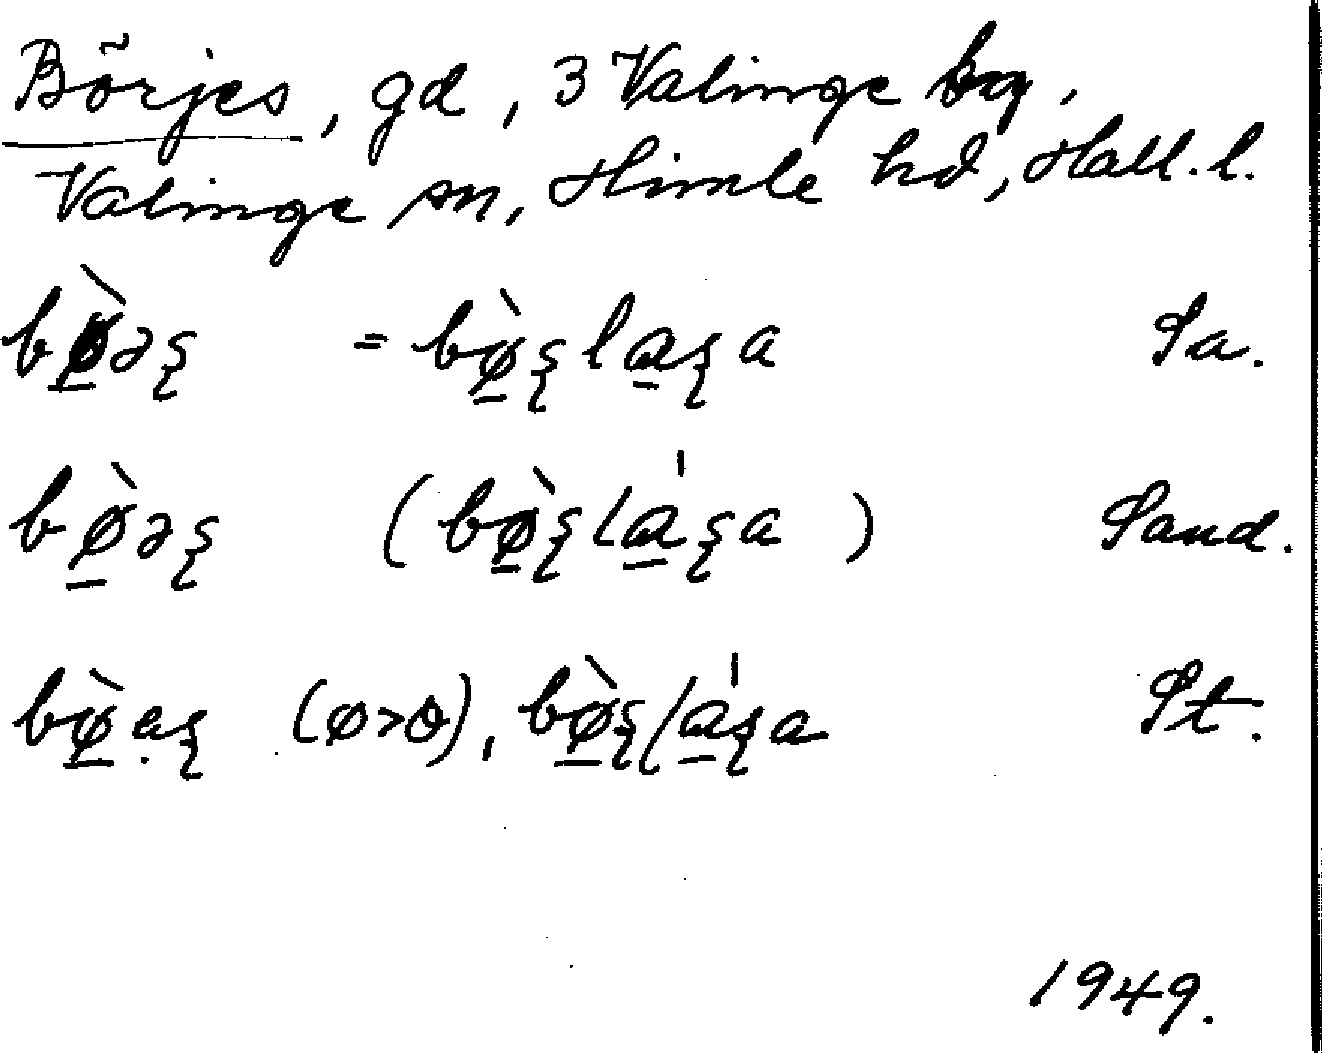 Börjes, gd, 3 Valinge by,
Valinge sn, Himle hd, Hall. l.
bø̠̀əʂ = bø̠̀ʂla̠ʂa Sa.
bø̠̀əʂ (bø̠̀ʂla̠ˈʂa) Sand.
bø̠̀ẹʂ (ø>ө), bø̠̀ʂla̠ˈʂa St.
1949.